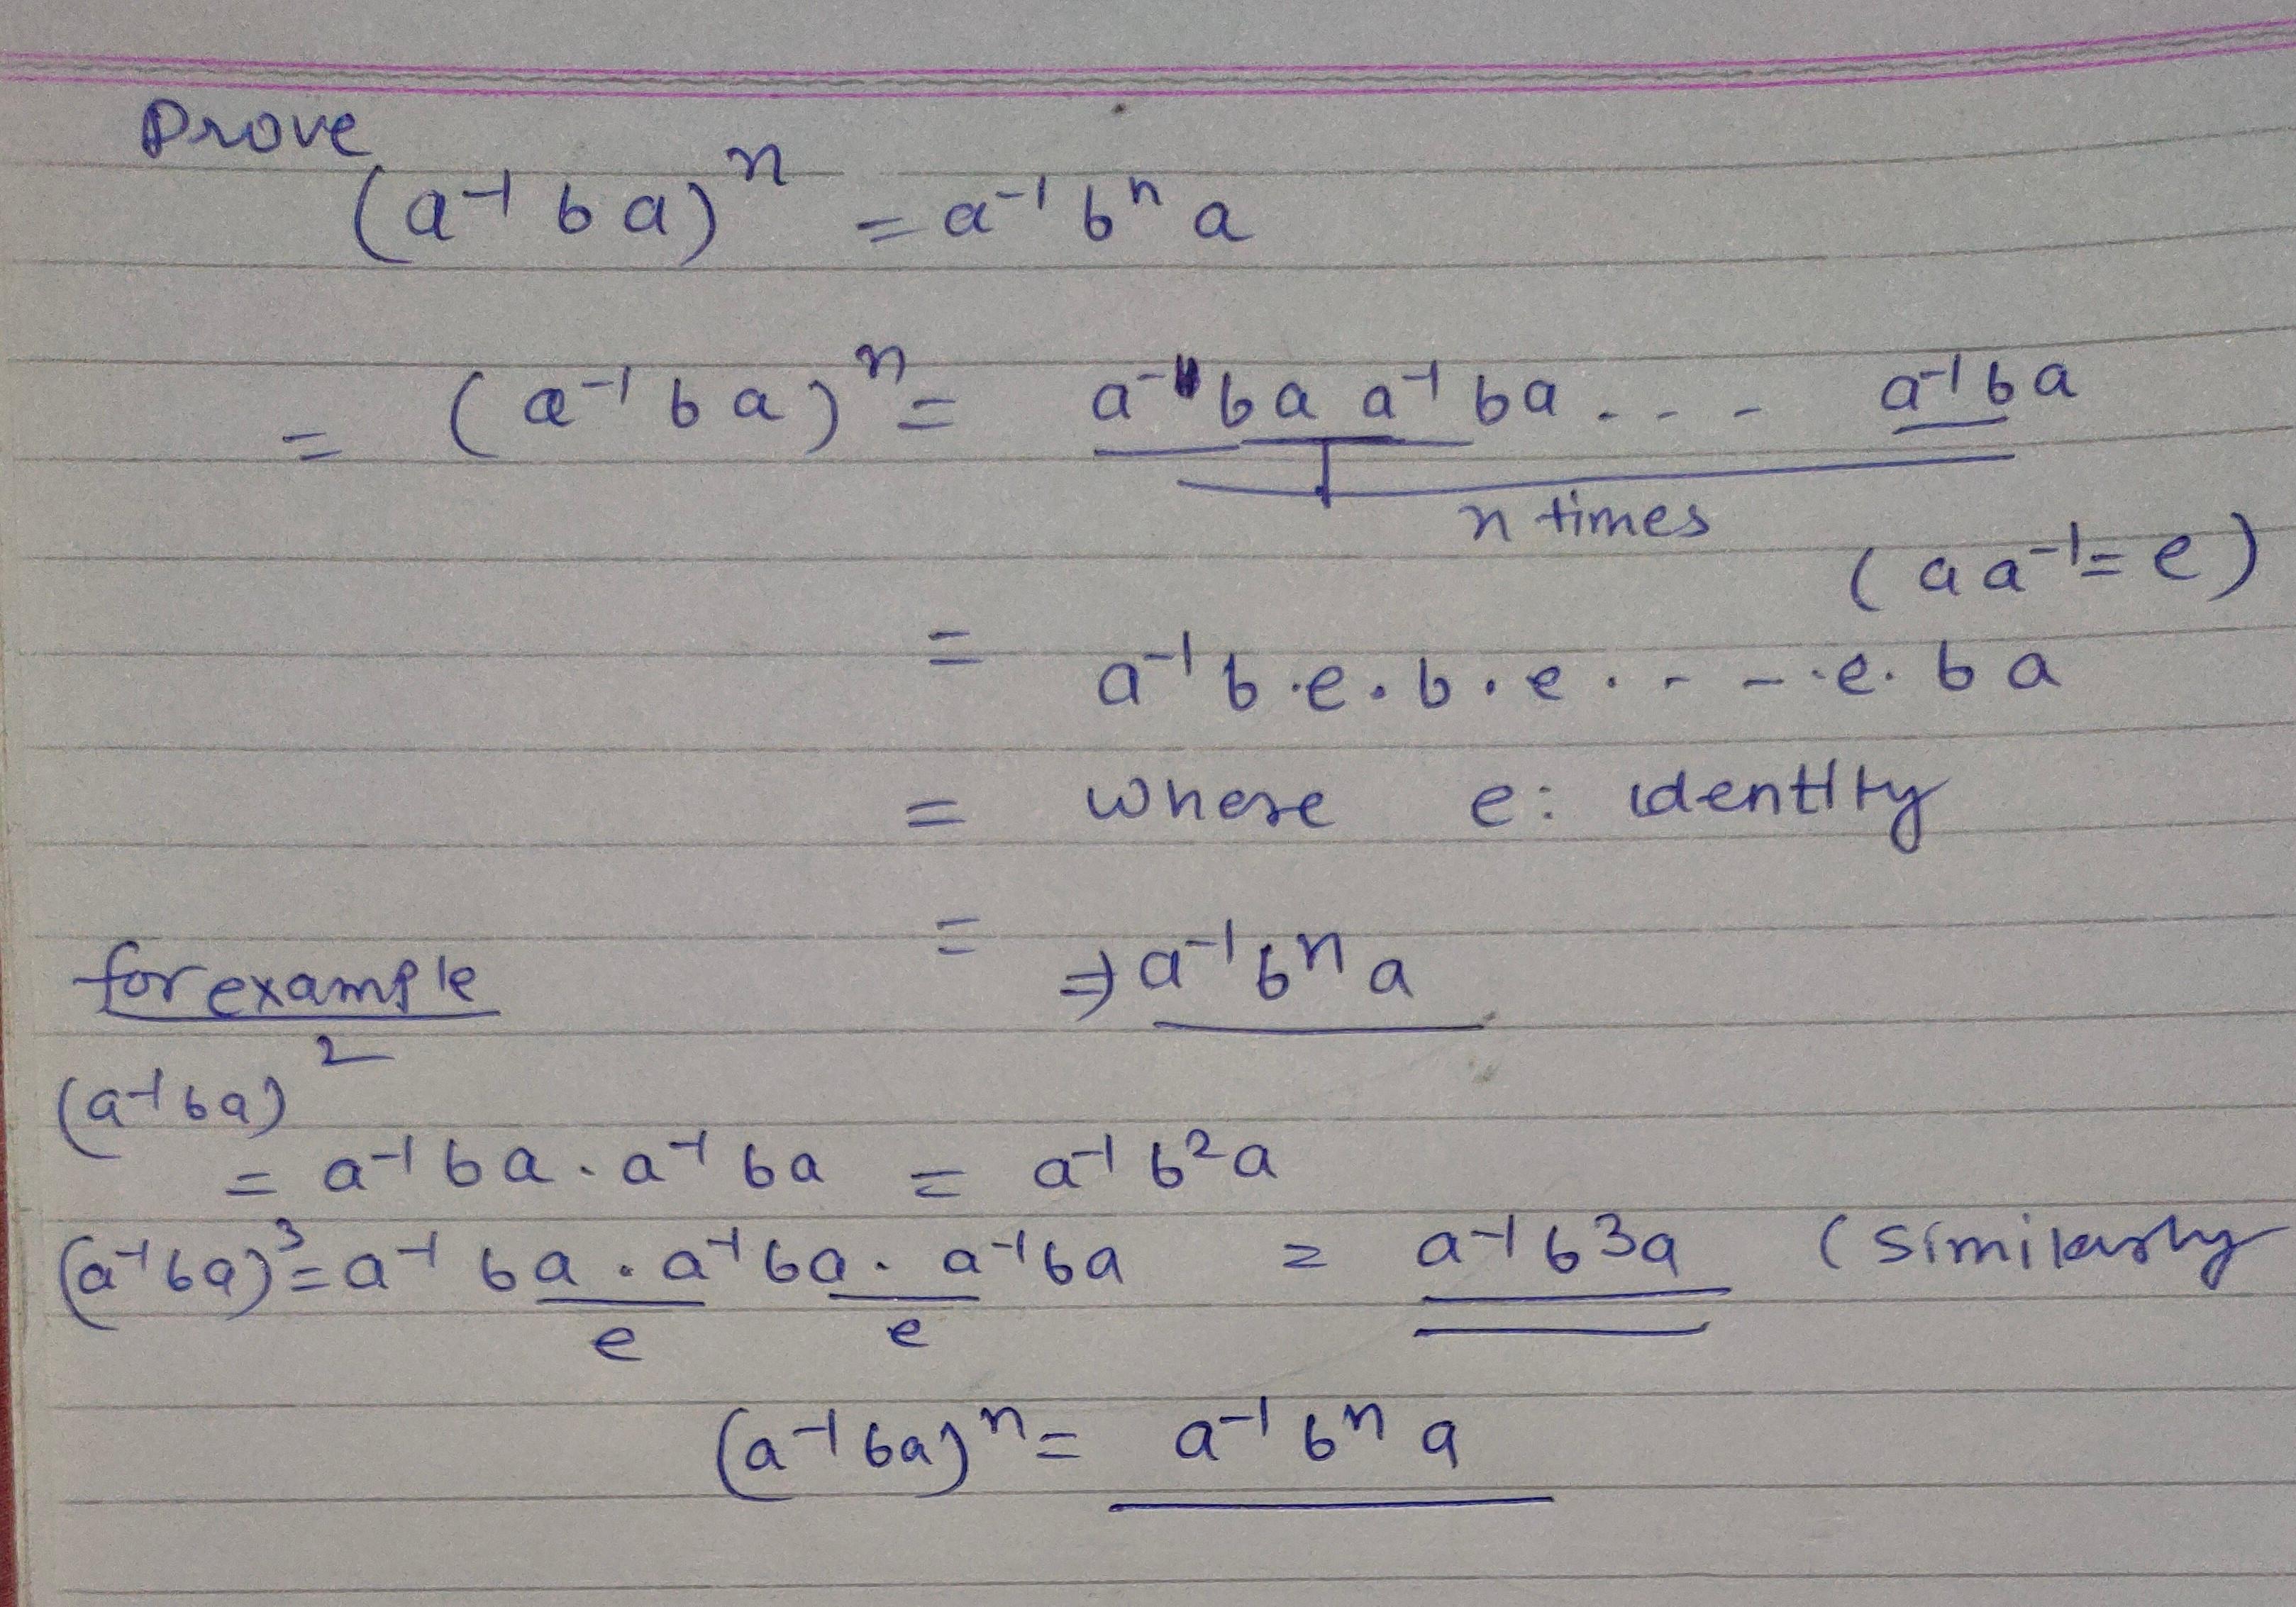 Prove
(a⁻¹ b a)ⁿ = a⁻¹ bⁿ a
= (a⁻¹ b a)ⁿ = a⁻¹ b a a⁻¹ b a . - - a⁻¹ b a
n times
(a a⁻¹ = e)
= a⁻¹ b . e . b . e . - - . e . b a
= where e : identity
= ⇒ a⁻¹ bⁿ a
for example
(a⁻¹ b a)²
= a⁻¹ b a . a⁻¹ b a = a⁻¹ b² a
(a⁻¹ b a)³ = a⁻¹ b a . a⁻¹ b a . a⁻¹ b a = a⁻¹ b³ a (similarly
e e
(a⁻¹ b a)ⁿ = a⁻¹ bⁿ a